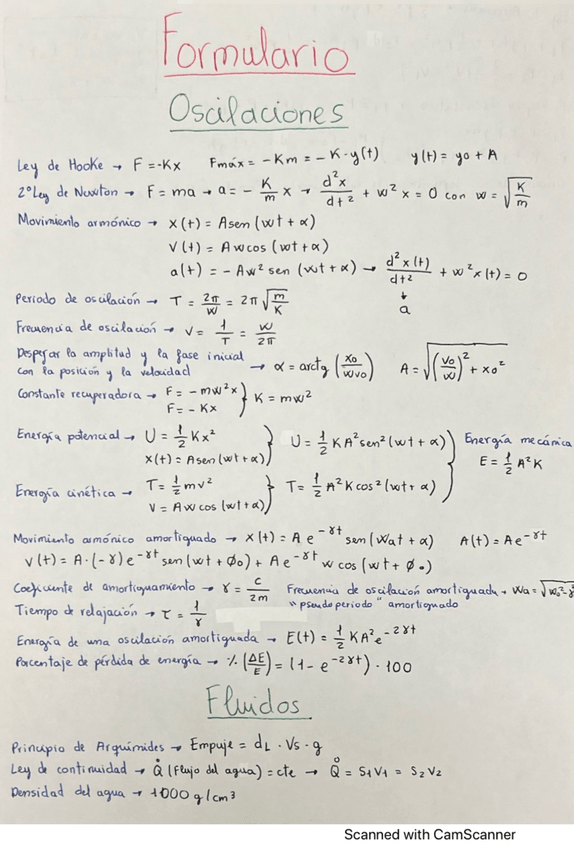 Formulario
Oscilaciones
Ley de Hooke → F = -Kx Fmáx = -Km = -K·y(t) y(t) = y0 + A
2º Ley de Newton → F = ma → a = - K/m x → d²x/dt² + w²x = 0 con w = √(K/m)
Movimiento armónico → x(t) = A sen (wt + α)
V(t) = A w cos (wt + α)
a(t) = - A w² sen (wt + α) → d²x(t)/dt² + w²x(t) = 0
↓
a
Periodo de oscilación → T = 2π/w = 2π √(m/K)
Frecuencia de oscilación → ν = 1/T = w/2π
Despejar la amplitud y la fase inicial
con la posición y la velocidad → α = arctg (x0/wv0) A = √((v0/w)² + x0²)
Constante recuperadora → F = -mw²x
F = -Kx } K = mw²
Energía potencial → U = 1/2 Kx²
x(t) = A sen (wt + α) } U = 1/2 KA² sen² (wt + α) } Energía mecánica
E = 1/2 A²K
Energía cinética → T = 1/2 mv²
V = A w cos (wt + α) } T = 1/2 A² K cos² (wt + α)
Movimiento armónico amortiguado → x(t) = A e^-γt sen (Wat + α) A(t) = A e^-γt
V(t) = A·(-γ) e^-γt sen (wt + ϕ0) + A e^-γt w cos (wt + ϕ0)
Coeficiente de amortiguamiento → γ = c/2m Frecuencia de oscilación amortiguada → Wa = √w0²-γ
"pseudo periodo" amortiguado
Tiempo de relajación → τ = 1/γ
Energía de una oscilación amortiguada → E(t) = 1/2 KA² e^-2γt
Porcentaje de pérdida de energía → % (ΔE/E) = (1 - e^-2γt) · 100
Fluidos
Principio de Arquímides → Empuje = dL · Vs · g
Ley de continuidad → Q̊ (Flujo del agua) = cte → Q̊ = S1V1 = S2V2
Densidad del agua → 1000 g/cm³
Scanned with CamScanner